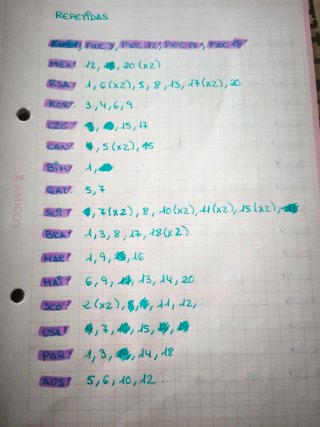 REPETIDAS
FWC 7, FWC 12, FWC 13, FWC 18
MEX! 12, 20 (x2)
RSA! 1, 6(x2), 5, 8, 13, 17(x2), 20
KOR! 3, 4, 6, 9
CZE! 15, 17
CAN! 5(x2), 15
BIH! 1,
QAT! 5, 7
SUI! 7(x2), 8, 10(x2), 11(x2), 15(x2),
BRA! 1, 3, 8, 17, 18(x2)
MAR! 1, 9, 16
HAI! 6, 9, 13, 14, 20
SCO! 2(x2), 11, 12,
USA! 7, 15,
PAR! 1, 3, 14, 18
AUS! 5, 6, 10, 12
& AMIGOS